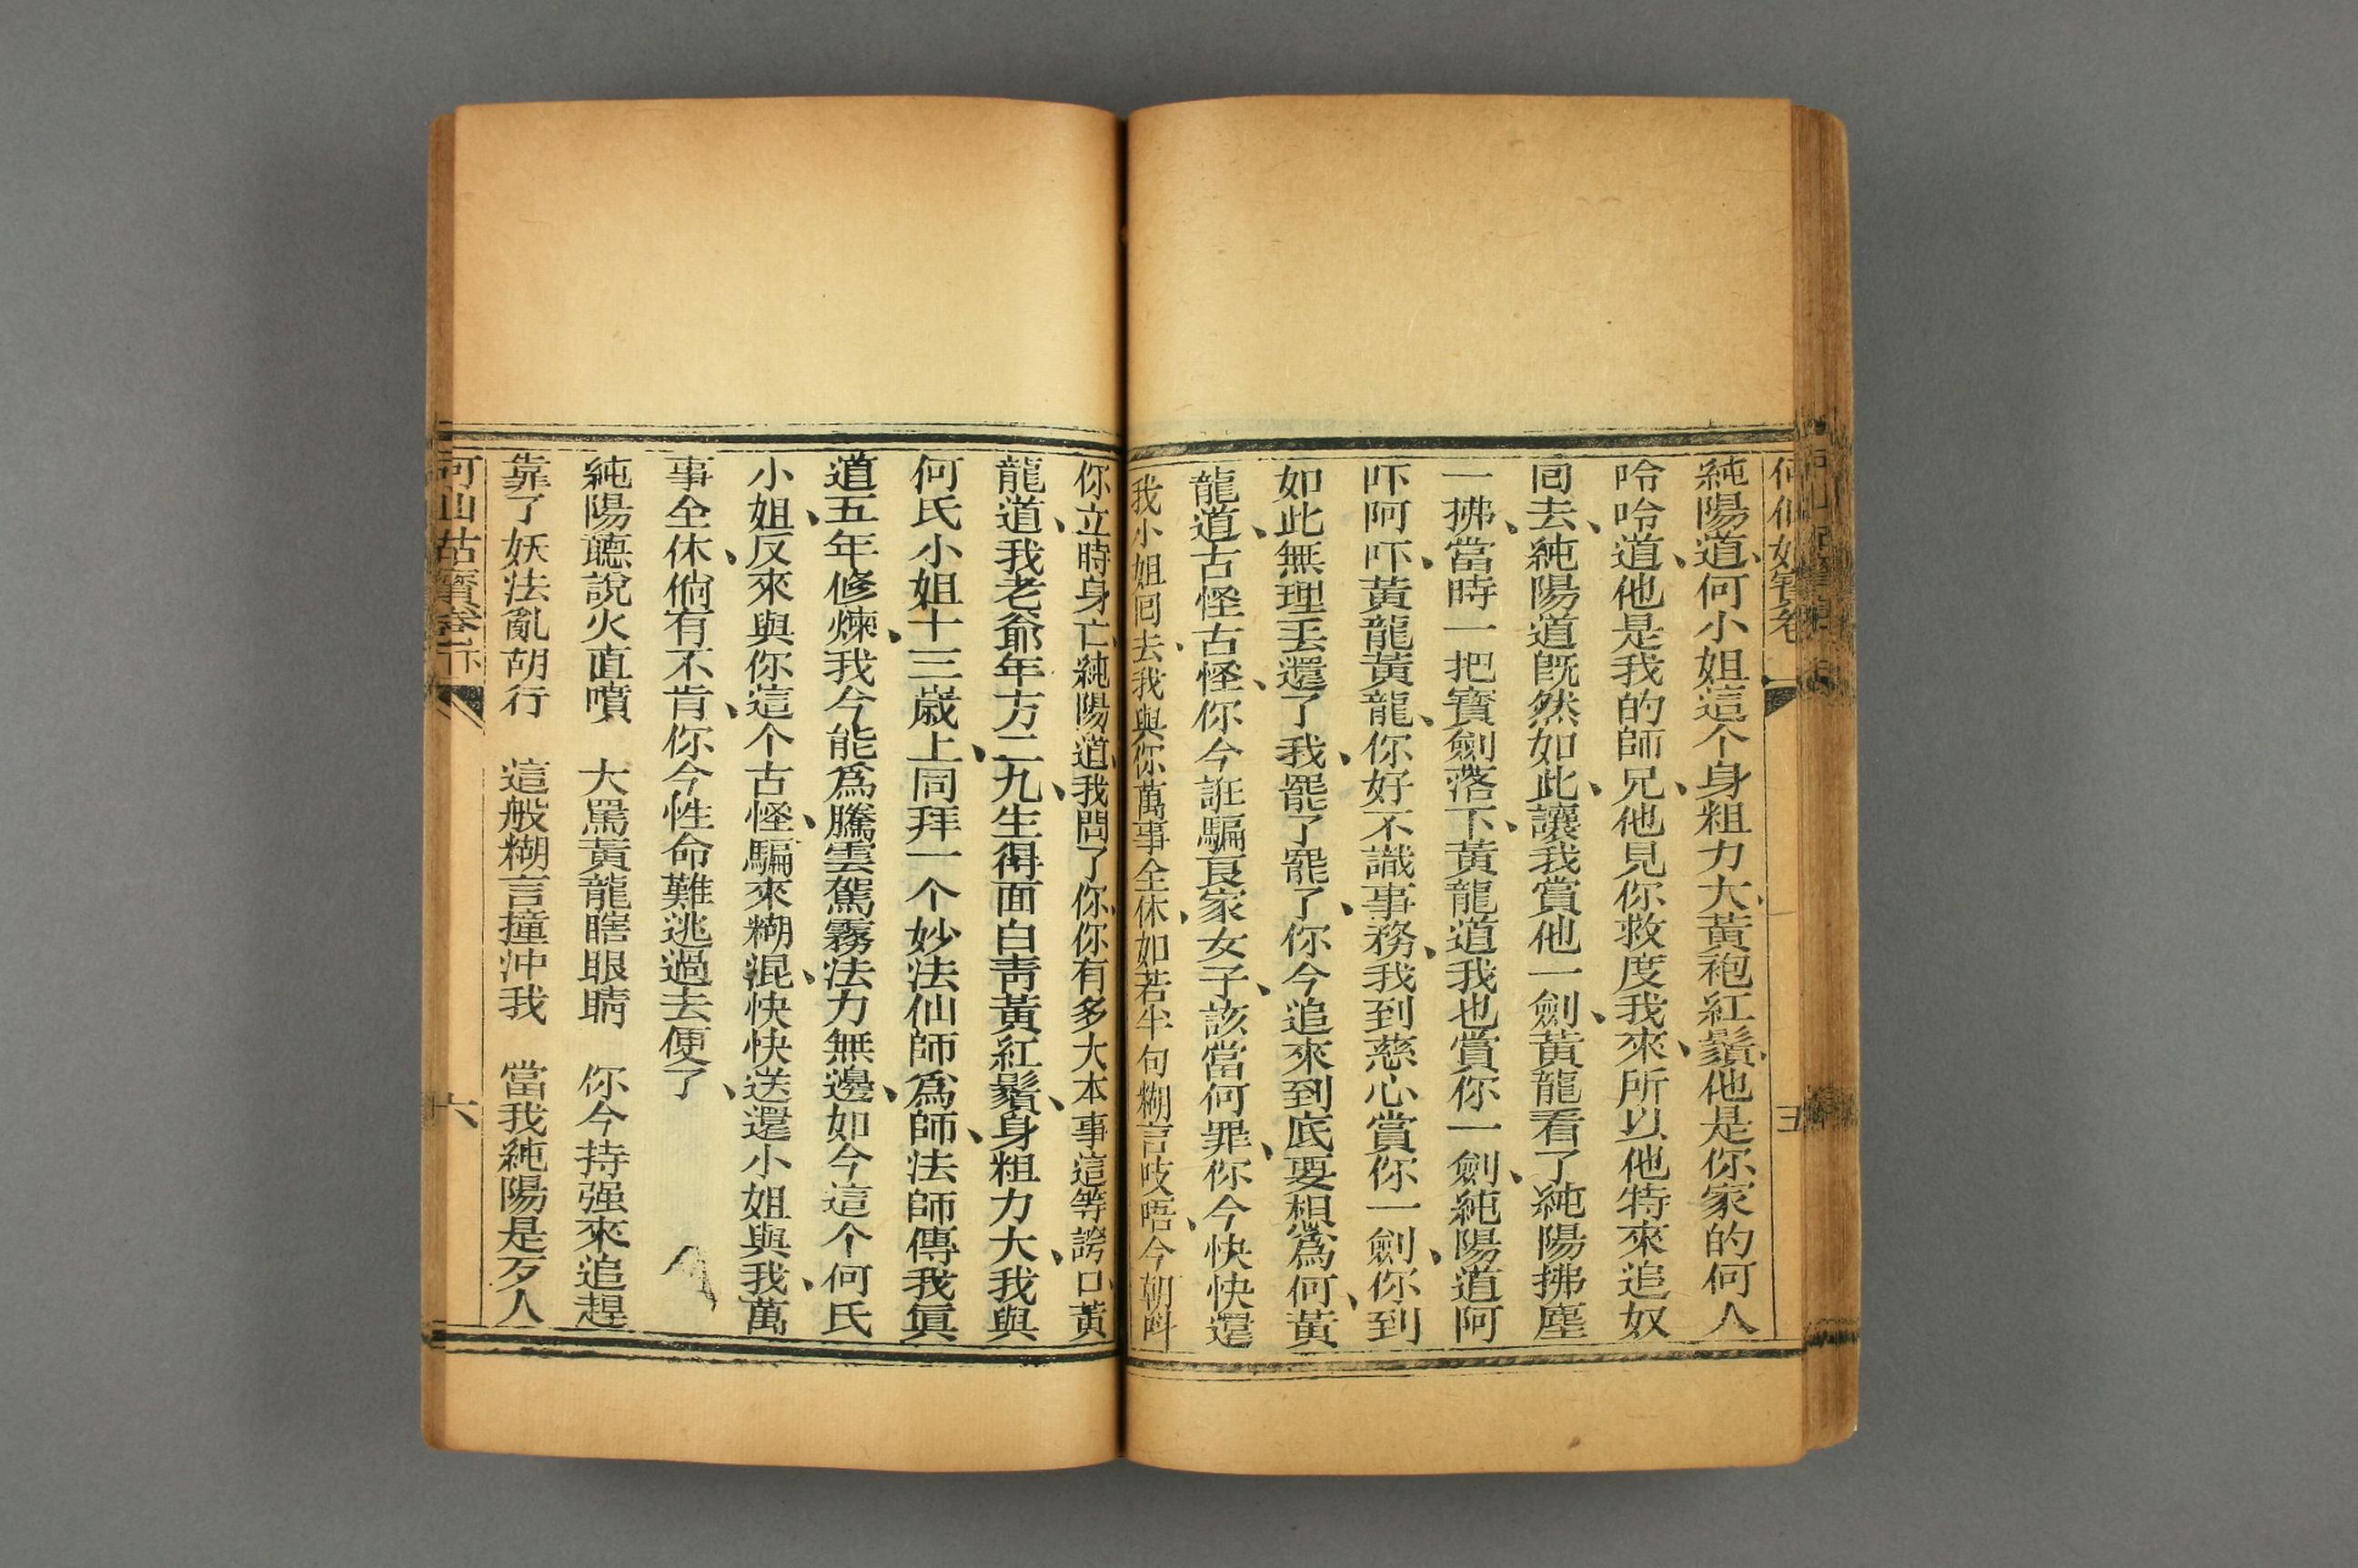 何仙姑寶卷
五
純陽道、何小姐這个身粗力大、黃袍紅鬚、他是你家的何人
哈哈道、他是我的師兄、他見你救度我來、所以他特來追奴
囘去、純陽道旣然如此、讓我賞他一劍、黃龍看了純陽拂塵
一拂、當時一把寶劍落下、黃龍道我也賞你一劍、純陽道阿
吓阿吓、黃龍黃龍、你好不識事務、我到慈心賞你一劍、你到
如此無理丟還了我、罷了罷了、你今追來到底要想為何、黃
龍道、古怪古怪、你今誑騙良家女子、該當何罪、你今快快還
我小姐囘去、我與你萬事全休、如若半句糊言吱唔、今朝呌
你立時身亡、純陽道、我問了你、你有多大本事這等誇口、黃
龍道、我老爺年方二九、生得面白靑黃紅鬚、身粗力大、我與
何氏小姐十三歲上、同拜一个妙法仙師爲師、法師傳我眞
道五年修煉、我今能爲騰雲駕霧法力無邊、如今這个何氏
小姐、反來與你這个古怪、騙來糊混、快快送還小姐與我、萬
事全休、倘有不肯、你今性命難逃過去便了、
純陽聽說火直噴　大罵黃龍瞎眼睛　你今持强來追趕
靠了妖法亂胡行　這般糊言撞冲我　當我純陽是歹人
何仙姑寶卷下
六